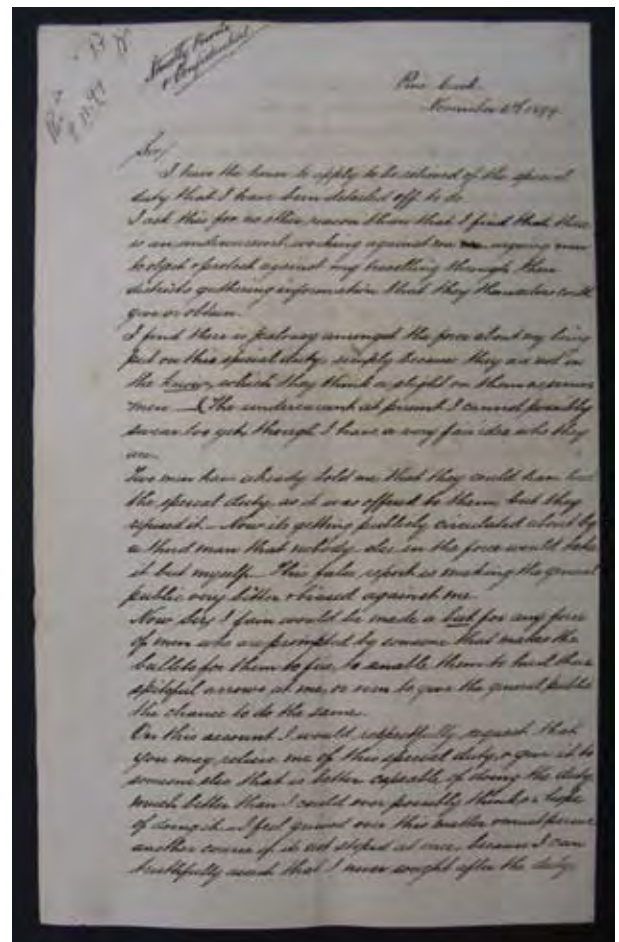 Strictly Private
& Confidential
Pine Creek
November 2nd 1899
Sir/
I have the honor to apply to be relieved of the special
duty that I have been detailed off to do
I ask this for no other reason than that I find that there
is an undercurrent working against me urging men
to object & protest against my travelling through their
districts gathering information that they themselves could
give or obtain.
I find there is jealousy amongst the force about my being
put on this special duty simply because they are not in
the know, which they think a slight on them as senior
men. The undercurrent at present I cannot possibly
swear too yet, though I have a very fair idea who they
are.
Two men have already told me that they could have had
the special duty as it was offered to them, but they
refused it. Now its getting publicly circulated about by
a third man that nobody else in the force would take
it but myself. This false report is making the general
public very bitter & biased against me.
Now Sir, I fain would be made a butt for any force
of men who are prompted by someone that makes the
bullets for them to fire, to enable them to hurl their
spiteful arrows at me, or even to give the general public
the chance to do the same.
On this account I would respectfully request that
you may relieve me of this special duty & give it to
someone else that is better capable of doing the duty
much better than I could ever possibly think or hope
of doing it. I feel grieved over this matter &
another course if its not stoped at once, because I can
truthfully that I never sought after the duty